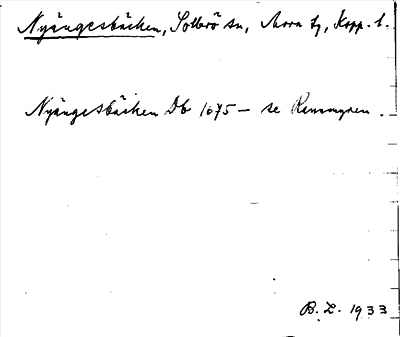 Nyängesbäcken, Sollerö sn, Mora tg, Kopp. l.
Nyängesbäcken Db 1075 — se Rensmyren.
B. L. 1933